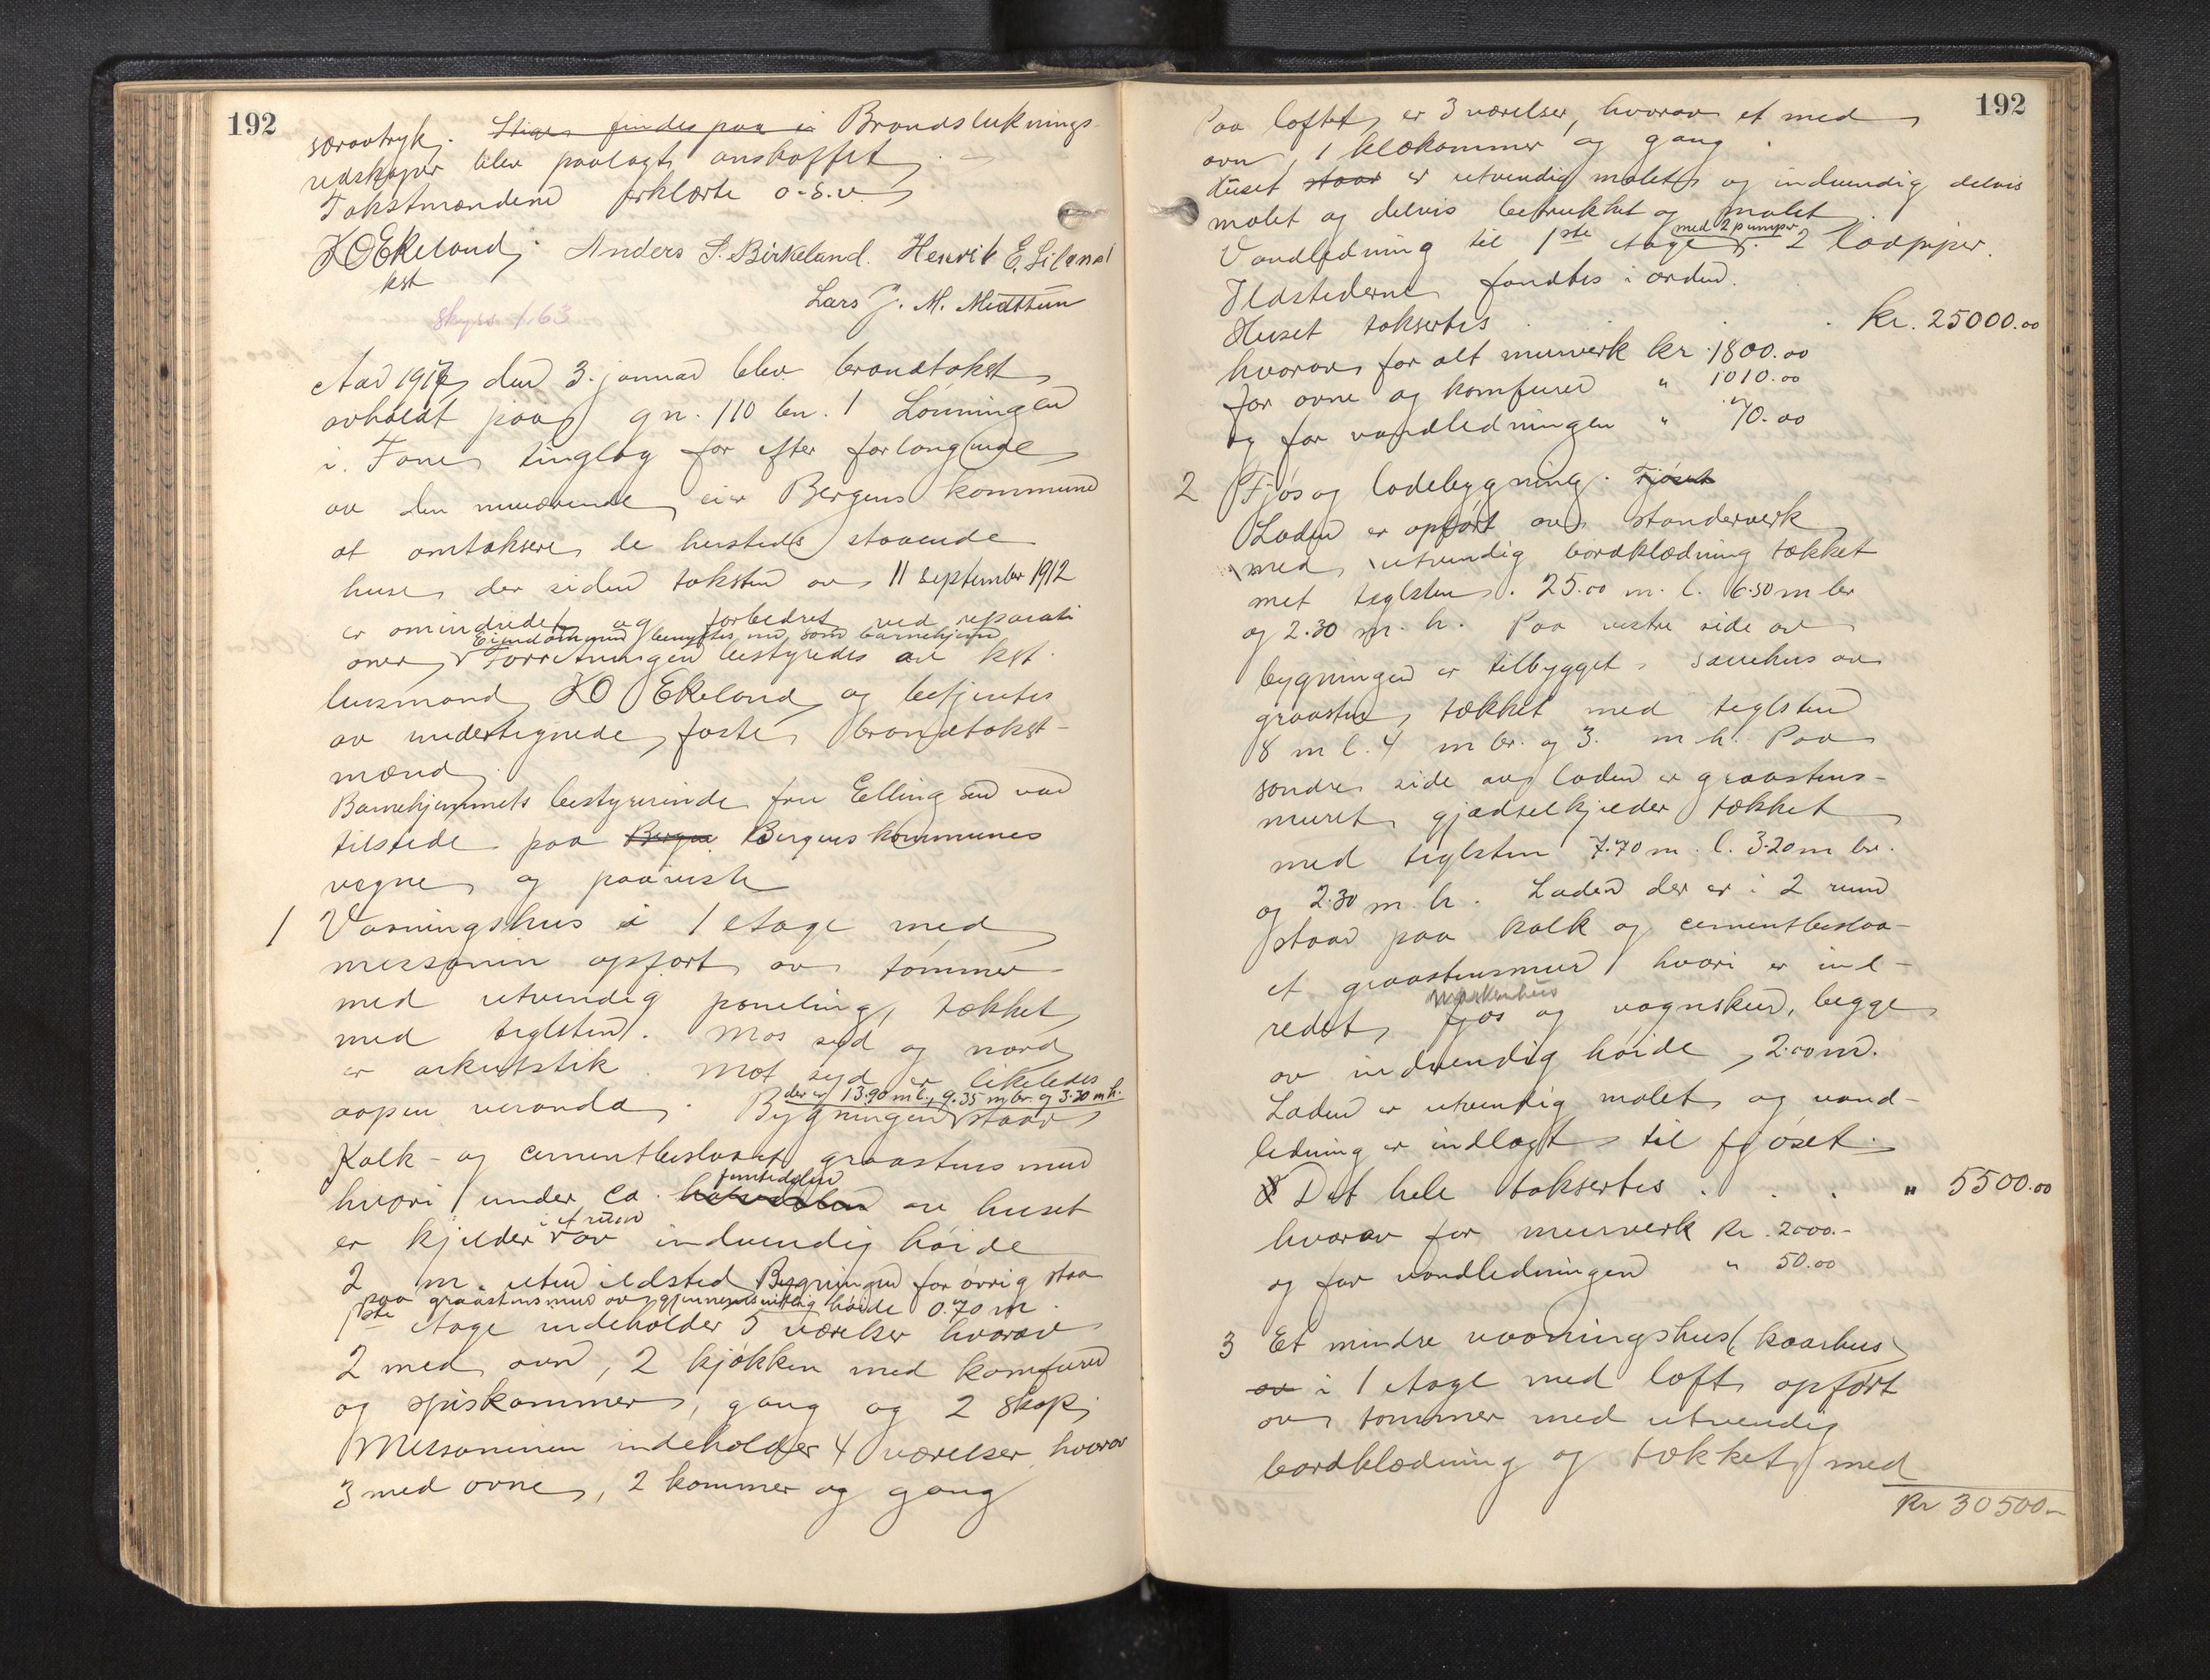 192
særavtryk. Stiger findes paa  Brandsluknings-
redskaper blev paalagt anskaffet.
Takstmændene erklærte o.s.v.
K O Ekeland, Anders S. Birkeland. Henrik E. Liland
kst
Lars J. M. Midttun
Skyss 1.63
Aar 1917 den 3. januar blev brandtakst
avholdt paa gn. 110 bn. 1 Lønningen
i Fane tinglag for efter forlangende
av den nuværende eier Bergens kommune
at omtaksere de hersteds staaende
huse, der siden taksten av 11 september 1912
er omindredet og forbedret ved reparati
Eiendommen benyttes nu som barnehjem
oner, Forretningen bestyredes av kst.
lensmand K O Ekeland og betjentes
av undertegnede faste brandtakst-
mænd.
Barnehjemmets bestyrerinde fru Ellingsen var
tilstede paa Bergen Bergens kommunes
vegne og paaviste
1 Vaaningshus i 1 etage med
messanin opført av tømmer
med utvendig paneling, tækket
med teglsten. Mos syd og nord
er arkutstik. Mot syd er likeledes
der er 13.90 m l., 9.35 m br. og 3.30 m h.
aapen veranda. Bygningen staar
Kalk- og cementbeslaaet graastens mur
femtedelen
hvori under ca. halvdelen av huset
i et rum
er kjelder av indvendig høide
2 m. uten ildsted. Bygningen for øvrig staa
paa graastensmur av gjennemsnittlig høide 0.70 m.
1ste etage indeholder 5 værelser hvorav
2 med ovn, 2 kjøkken med komfurer
og spiskammer, gang og 2 skap;
Messaninen indeholder 4 værelser, hvorav
3 med ovne, 2 kammer og gang
192
Paa loftet er 3 værelser, hvorav et med
ovn, 1 klækammer og gang.
Huset staar er utvendig malet og indvendig delvis
malet og delvis betrukket og malet
med 2 pumper
Vandledning til 1ste etage. 2 ladpiper.
Ildstederne fandtes i orden.
Huset taksertes . . . kr. 25000.00
hvorav for alt murverk kr. 1800.00
for ovne og komfurer " 1010.00
og for vandledningen " 70.00
2 Fjøs og ladebygning. Fjøset
Laden er opført av standerverk
med utvendig bordklædning tækket
met teglsten. 25.00 m. l. 6.50 m br
og 2.30 m. h. Paa vestre side av
bygningen er tilbygget sauehus av
graasten, tækket med teglsten
8 m l. 4 m br. og 3. m h. Paa
søndre side av laden er graastens-
muret gjødselkjelder tækket
med teglsten 7.70 m. l. 3.20 m br.
og 2.30 m. h. Laden der er i 2 rum
staar paa kalk og cementbeslaa-
et graastensmur hvori er ind-
redet fjøs og vognskur, begge
av indvendig høide 2.00 m.
Laden er utvendig malet og vand-
ledning er indlagt til fjøset.
Det hele taksertes . . . " 5500.00
hvorav for murverk kr. 2000.-
og for vandledningen " 50.00
3 Et mindre vaaningshus (kaarhus)
av i 1 etage med loft opført
av tømmer med utvendig
bordklædning og tækket med
Kr 30500.-